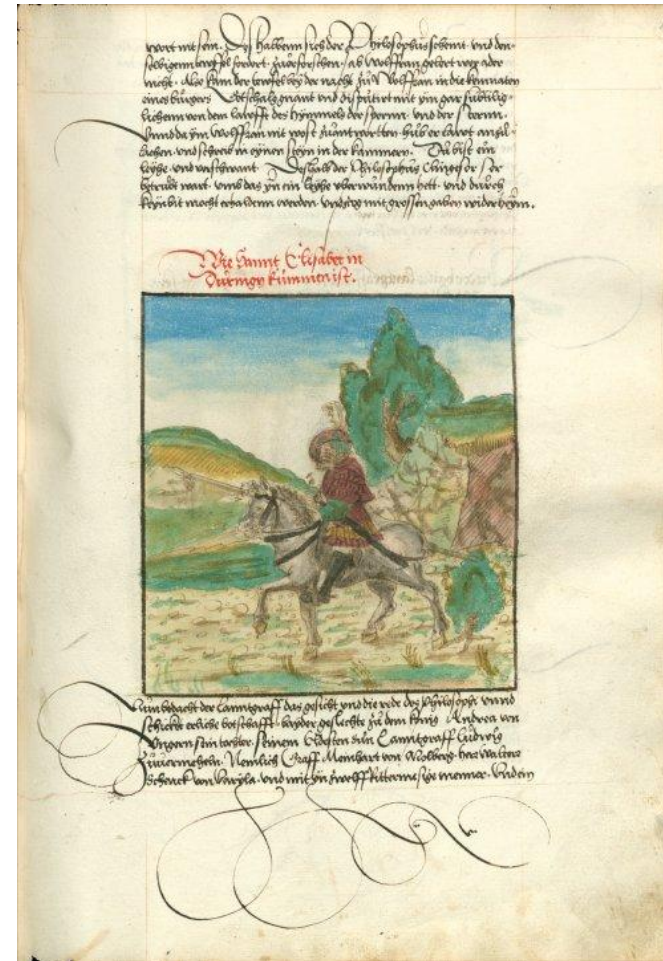 wort nit sein. Des halbenn sich der Philosophus schemt. vnd den
selbigenn zuerforschen. ab Wolffran gelert wer ader
nicht. Also kam der tewfel bey der nacht zu Wolffran in die kemnaten
eines burgers Gotschalg gnant vnd disputirt mit ym gar subtilig
lichenn von dem lawfft des hymmels der spernn. vnd der sternn.
vnnd da ym Wolffran nit wost zu antwortten. hub er lawt an zu
lachen. vnd schreib in eynen steyn in der kammern. Du bist ein
leyhe. vnd verschwant. Deshalb der Philosophus Clingesor ser
betrubt wart. vmb das yn ein leyhe vberwundenn hett. vnd durch
keyn bit mocht erhaldenn werden. vnd zog mit grossen gaben wider heym.
Wie Sannt Elisabet in
Duringen kummen ist.
Nun bedacht der Lanntgraff das gesicht vnd die rede des Philosophi vnnd
schickt erliche botschafft. bayder geslechte zu dem konig Andrea von
Vngern sein tochter. seinem Eldesten sun Lanntgraff Ludwig
zuuermeheln. Nemlich Graff Meinhart von Molberg. hern Walters
schenck von Varyla. vnd mit yn zwelff Rittermesige menner. Vnd ein